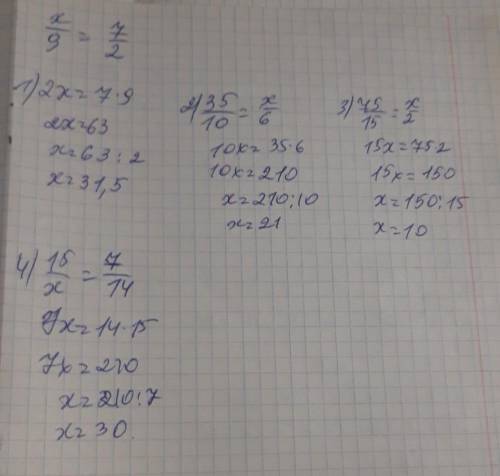 x/9 = 7/2
1) 2x=7·9
2x=63
x=63:2
x=31,5
2) 35/10 = x/6
10x=35·6
10x=210
x=210:10
x=21
3) 75/15 = x/2
15x=75·2
15x=150
x=150:15
x=10
4) 15/x = 7/14
7x=14·15
7x=210
x=210:7
x=30.